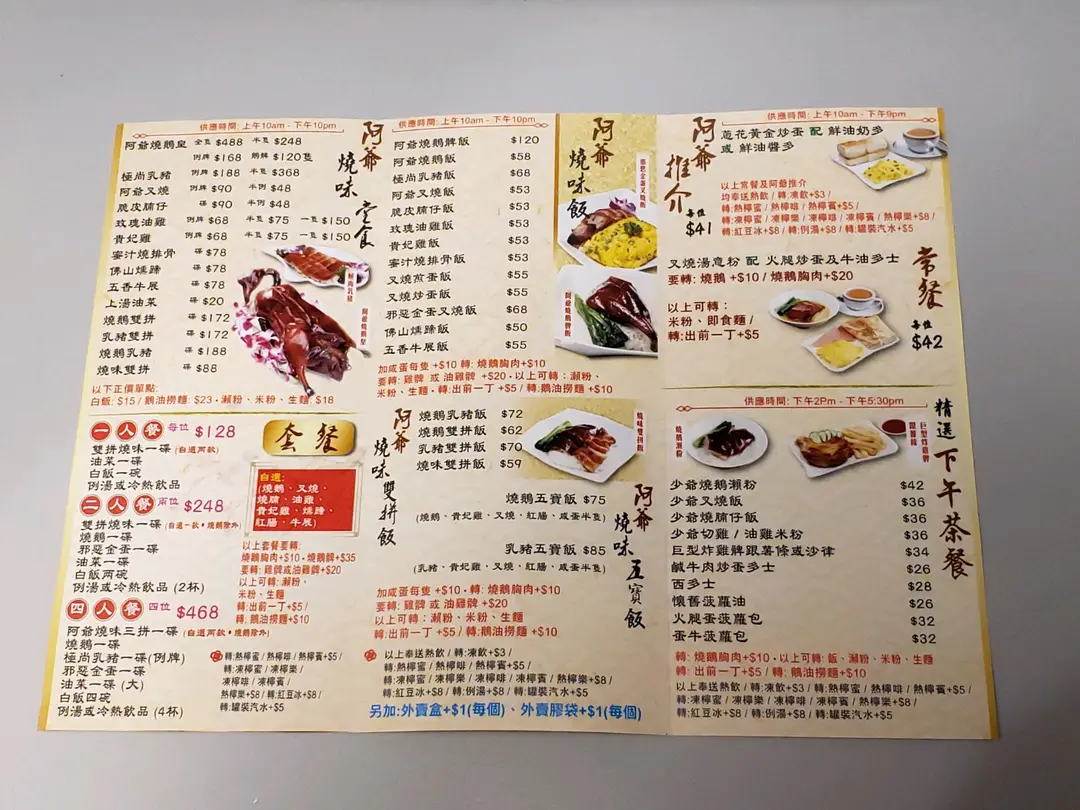 供應時間: 上午10am - 下午10pm
阿爺燒味堂食
阿爺燒鵝皇 全隻 $488 半隻 $248
例牌 $168 鵝髀 $120隻
極尚乳豬 例牌 $188 半隻 $368
阿爺叉燒 例牌 $90 半例 $48
脆皮腩仔 碟 $90 半例 $48
玫瑰油雞 例牌 $68 半隻 $75 一隻 $150
貴妃雞 例牌 $68 半隻 $75 一隻 $150
蜜汁燒排骨 碟 $78
佛山燻蹄 碟 $78
五香牛展 碟 $78
上湯油菜 碟 $20
燒鵝雙拼 碟 $172
乳豬雙拼 碟 $172
燒鵝乳豬 碟 $188
燒味雙拼 碟 $88
極尚乳豬
阿爺燒鵝皇
以下正價單點:
白飯: $15 / 鵝油撈麵: $23 • 瀨粉、米粉、生麵: $18
套餐
一人餐 每位 $128
雙拼燒味一碟 (自選兩款)
油菜一碟
白飯一碗
例湯或冷熱飲品
二人餐 兩位 $248
雙拼燒味一碟 (自選一款•燒鵝除外)
燒鵝一碟
邪惡金蛋一碟
油菜一碟
白飯兩碗
例湯或冷熱飲品 (2杯)
四人餐 四位 $468
阿爺燒味三拼一碟 (自選兩款•燒鵝除外)
燒鵝一碟
極尚乳豬一碟(例牌)
邪惡金蛋一碟
油菜一碟 (大)
白飯四碗
例湯或冷熱飲品 (4杯)
自選:
(燒鵝、叉燒、
燒腩、油雞、
貴妃雞、燻蹄、
紅腸、牛展)
以上套餐要轉:
燒鵝胸肉+$10 • 燒鵝髀+$35
要轉: 雞髀或油雞髀+$20
以上可轉: 瀨粉、
米粉、生麵
轉:出前一丁+$5 /
轉: 鵝油撈麵+$10
轉:熱檸蜜 / 熱檸啡 / 熱檸賓+$5 /
轉:凍檸蜜 / 凍檸樂 /
凍檸啡 / 凍檸賓 /
熱檸樂+$8 / 轉:紅豆冰+$8 /
轉:罐裝汽水+$5
供應時間: 上午10am - 下午10pm
阿爺燒味飯
阿爺燒鵝髀飯 $120
阿爺燒鵝飯 $58
極尚乳豬飯 $68
阿爺叉燒飯 $53
脆皮腩仔飯 $53
玫瑰油雞飯 $53
貴妃雞飯 $53
蜜汁燒排骨飯 $53
叉燒煎蛋飯 $55
叉燒炒蛋飯 $55
邪惡金蛋叉燒飯 $68
佛山燻蹄飯 $50
五香牛展飯 $55
邪惡金蛋叉燒飯
阿爺燒鵝髀飯
加咸蛋每隻 +$10 轉: 燒鵝胸肉+$10
要轉: 雞髀 或 油雞髀 +$20 • 以上可轉: 瀨粉、
米粉、生麵 • 轉:出前一丁 +$5 / 轉: 鵝油撈麵 +$10
阿爺燒味雙拼飯
燒鵝乳豬飯 $72
燒鵝雙拼飯 $62
乳豬雙拼飯 $70
燒味雙拼飯 $59
燒味雙拼飯
阿爺燒味五寶飯
燒鵝五寶飯 $75
(燒鵝、貴妃雞、叉燒、紅腸、咸蛋半隻)
乳豬五寶飯 $85
(乳豬、貴妃雞、叉燒、紅腸、咸蛋半隻)
加咸蛋每隻 +$10 • 轉: 燒鵝胸肉+$10
要轉: 雞髀 或 油雞髀 +$20
以上可轉: 瀨粉、米粉、生麵
轉:出前一丁 +$5 / 轉: 鵝油撈麵 +$10
以上奉送熱飲 / 轉:凍飲+$3 /
轉:熱檸蜜 / 熱檸啡 / 熱檸賓+$5 /
轉:凍檸蜜 / 凍檸樂 / 凍檸啡 / 凍檸賓 / 熱檸樂+$8 /
轉:紅豆冰+$8 / 轉:例湯+$8 / 轉:罐裝汽水+$5
另加:外賣盒+$1(每個)、外賣膠袋+$1(每個)
供應時間: 上午10am - 下午9pm
阿爺推介
每位
$41
蔥花黃金炒蛋 配 鮮油奶多
或 鮮油醬多
以上常餐及阿爺推介
均奉送熱飲 / 轉:凍飲+$3 /
轉:熱檸蜜 / 熱檸啡 / 熱檸賓+$5 /
轉:凍檸蜜 / 凍檸樂 / 凍檸啡 / 凍檸賓 / 熱檸樂+$8 /
轉:紅豆冰+$8 / 轉:例湯+$8 / 轉:罐裝汽水+$5
常餐
每位
$42
叉燒湯意粉 配 火腿炒蛋及牛油多士
要轉: 燒鵝 +$10 / 燒鵝胸肉+$20
以上可轉:
米粉、即食麵 /
轉:出前一丁+$5
供應時間: 下午2Pm - 下午5:30pm
精選下午茶餐
燒鵝瀨粉
巨型炸雞髀
跟薯條
少爺燒鵝瀨粉 $42
少爺叉燒飯 $36
少爺燒腩仔飯 $36
少爺切雞 / 油雞米粉 $36
巨型炸雞髀跟薯條或沙律 $34
鹹牛肉炒蛋多士 $26
西多士 $28
懷舊菠蘿油 $26
火腿蛋菠蘿包 $32
蛋牛菠蘿包 $32
轉: 燒鵝胸肉+$10 • 以上可轉: 飯、瀨粉、米粉、生麵
轉: 出前一丁+$5 / 轉: 鵝油撈麵+$10
以上奉送熱飲 / 轉:凍飲+$3 / 轉:熱檸蜜 / 熱檸啡 / 熱檸賓+$5 /
轉:凍檸蜜 / 凍檸樂 / 凍檸啡 / 凍檸賓 / 熱檸樂+$8 /
轉:紅豆冰+$8 / 轉:例湯+$8 / 轉:罐裝汽水+$5